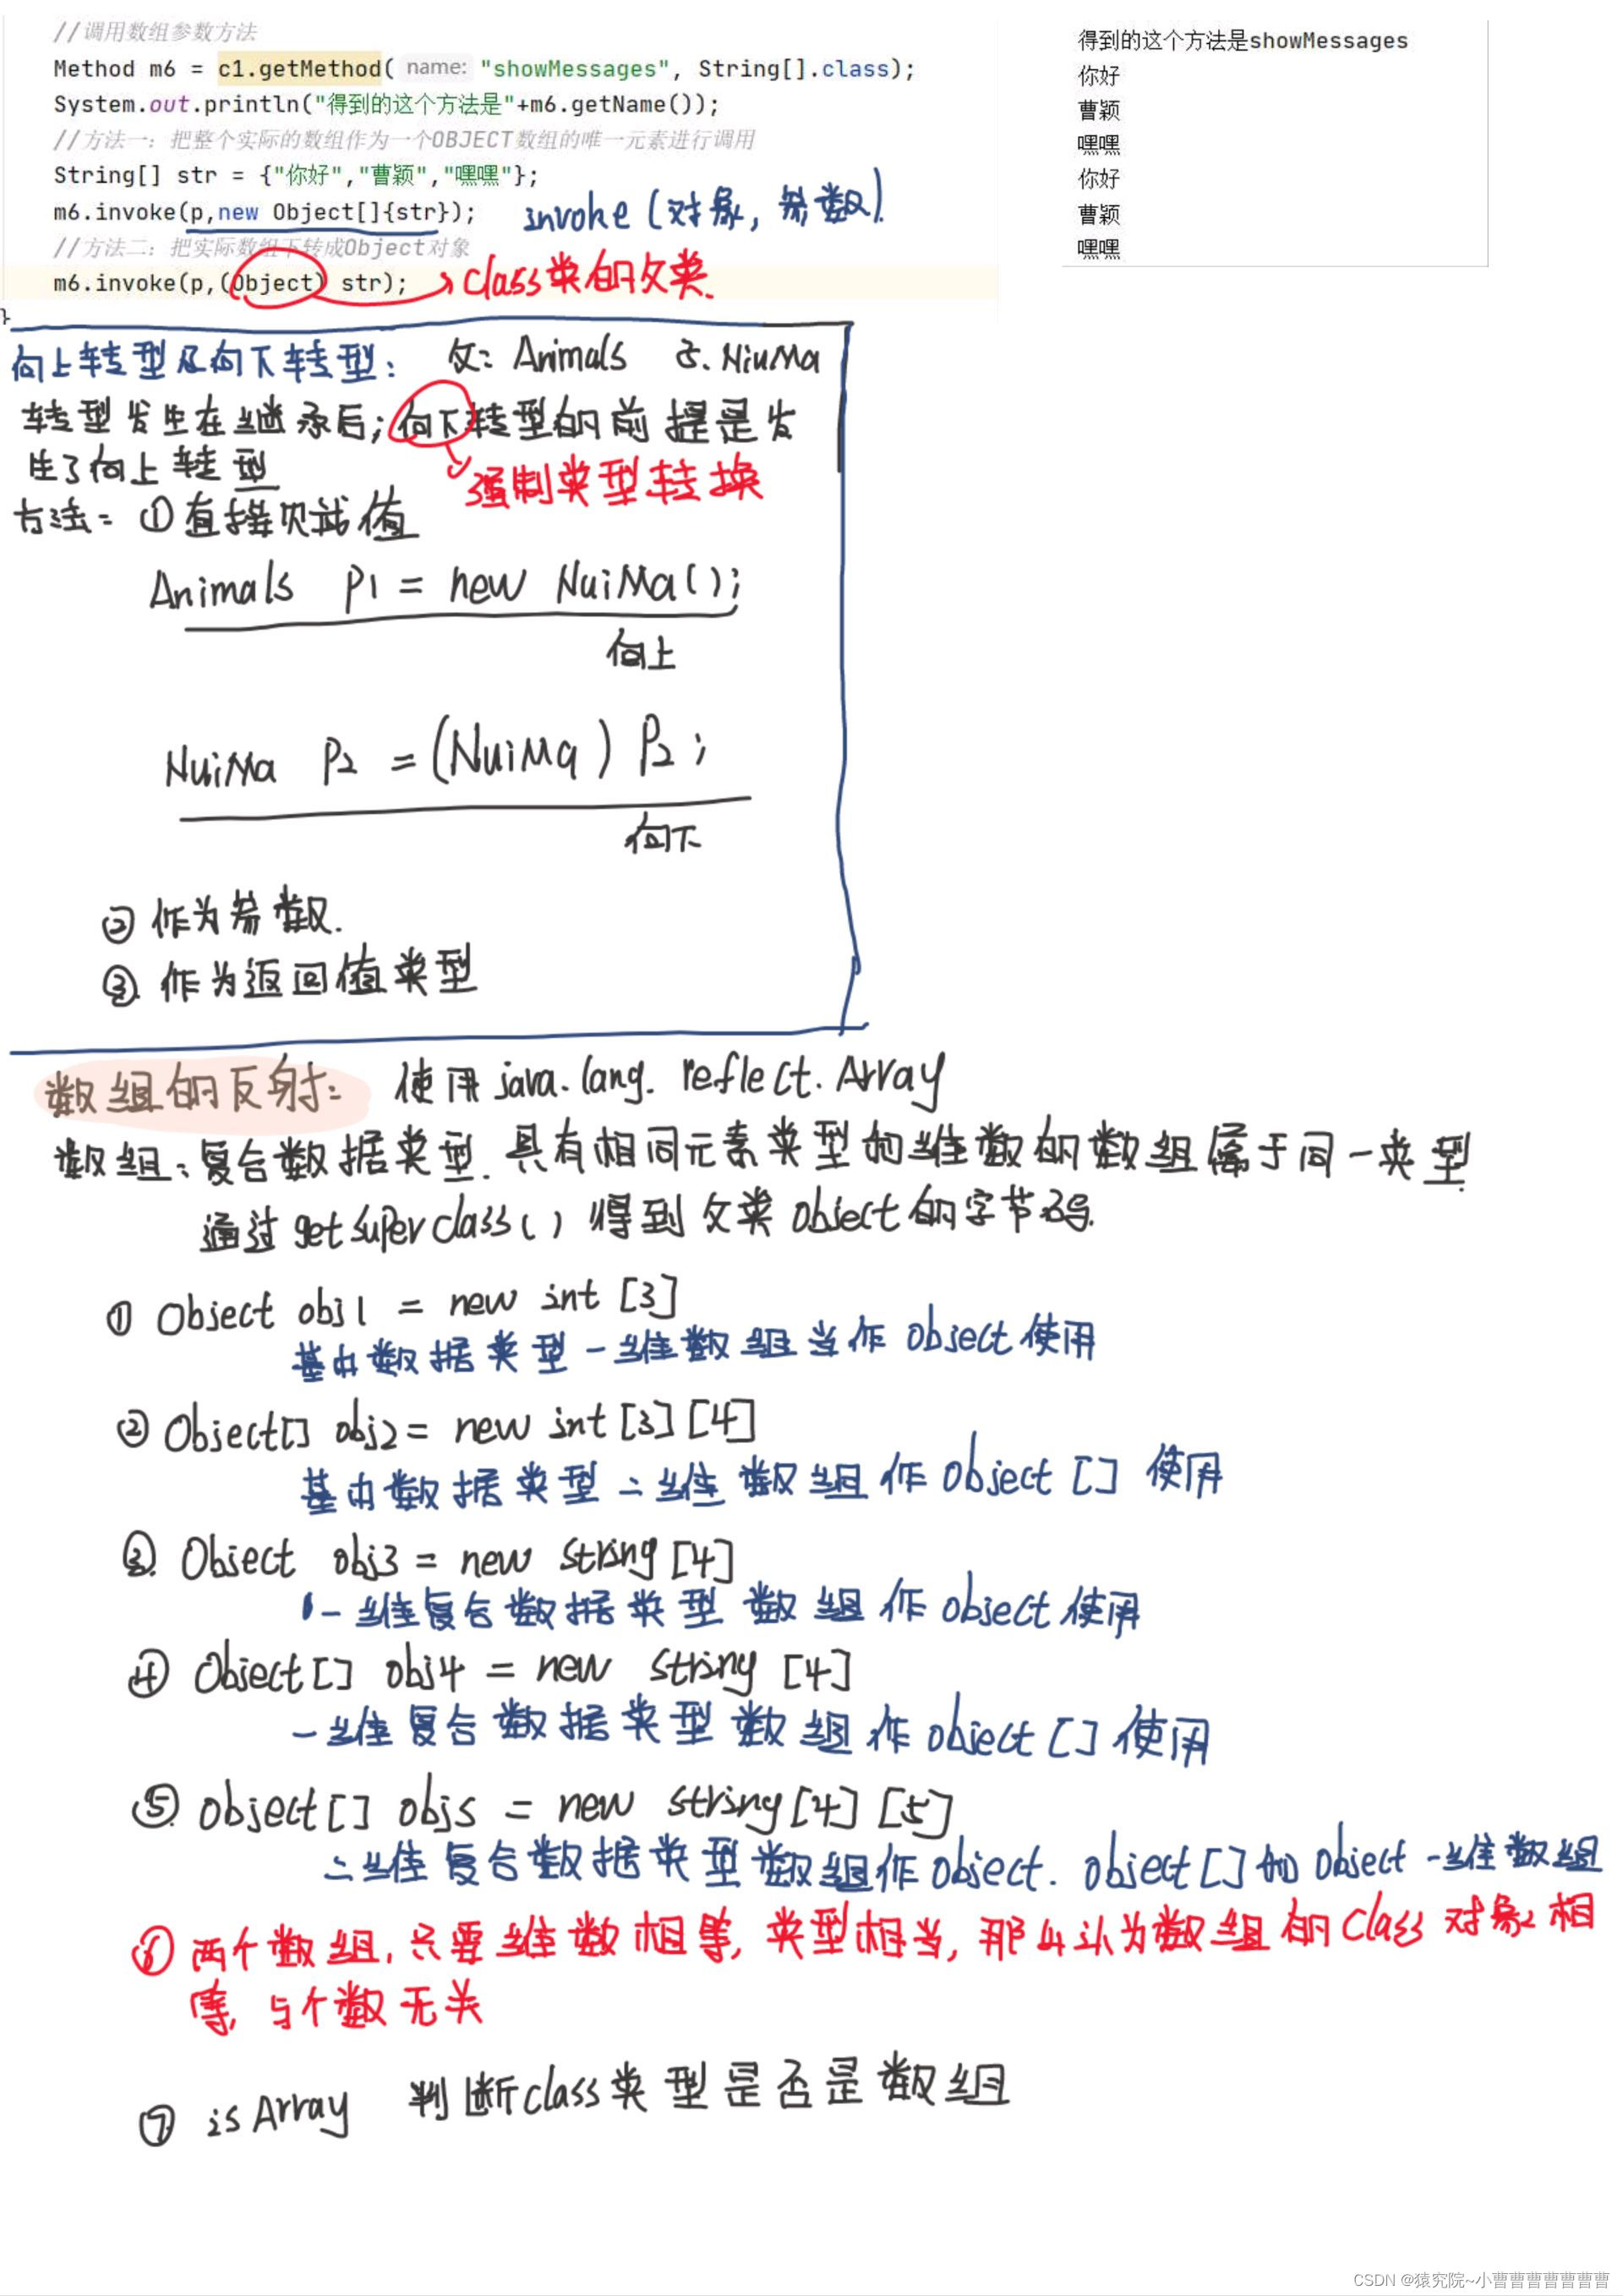 //调用数组参数方法
Method m6 = c1.getMethod( name: "showMessages", String[].class);
System.out.println("得到的这个方法是"+m6.getName());
//方法一：把整个实际的数组作为一个OBJECT数组的唯一元素进行调用
String[] str = {"你好","曹颖","嘿嘿"};
m6.invoke(p,new Object[]{str});
invoke(对象，参数)
//方法二：把实际数组下转成Object对象
m6.invoke(p,(Object) str);
class类的父类.
}
得到的这个方法是showMessages
你好
曹颖
嘿嘿
你好
曹颖
嘿嘿
向上转型及向下转型：
父：Animals 子.NiuMa
转型发生在继承后；向下转型的前提是发
生了向上转型
强制类型转换
方法：①直接赋值
Animals P1 = new NuiMa();
向上
NuiMa P2 = (NuiMa) P2;
向下
② 作为参数.
③. 作为返回值类型
数组的反射： 使用java.lang.reflect.Array
数组：复合数据类型.具有相同元素类型和维数的数组属于同一类型.
通过getSuperclass()得到父类Object的字节码.
① Object obj1 = new int [3]
基本数据类型一维数组当作Object使用
② Object[] obj2 = new int [3][4]
基本数据类型二维数组作Object[]使用
③. Object obj3 = new String [4]
一维复合数据类型数组作Object使用
④ Object[] obj4 = new String [4]
一维复合数据类型数组作Object[]使用
⑤. Object[] obj5 = new String[4][5]
二维复合数据类型数组作Object. Object[]和Object一维数组
⑥ 两个数组，只要维数相等，类型相当，那么认为数组的Class对象相
等，与个数无关
⑦ isArray 判断class类型是否是数组
CSDN @猿究院~小曹曹曹曹曹曹曹